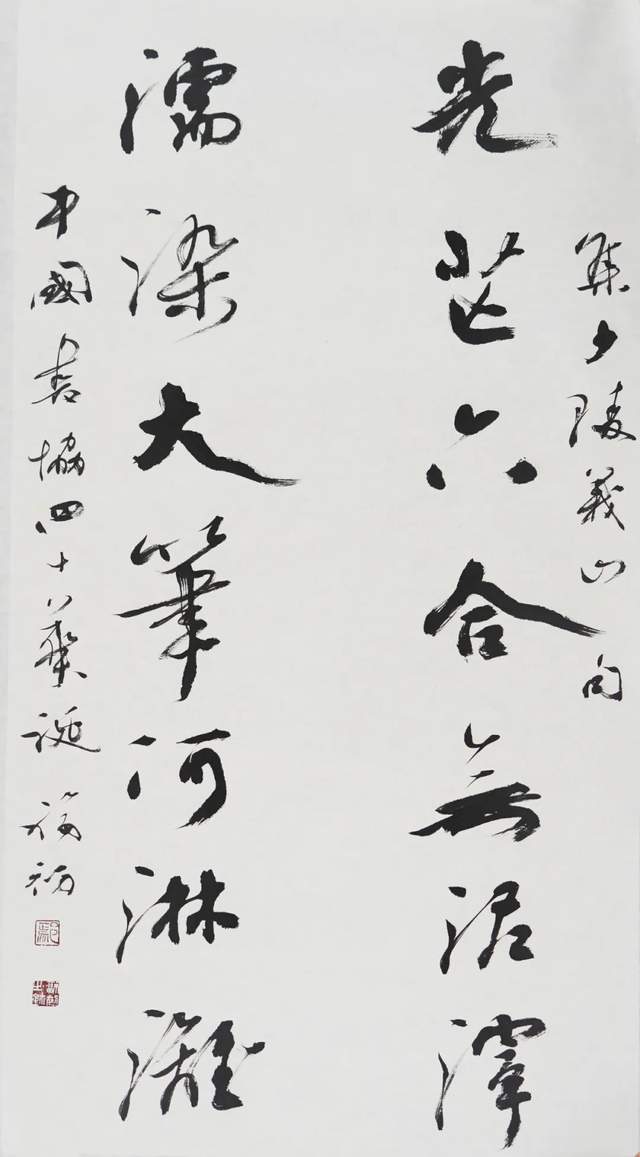 集少陵義山句
光芒六合無泥滓
濡染大筆何淋漓
中國書協四十華誕